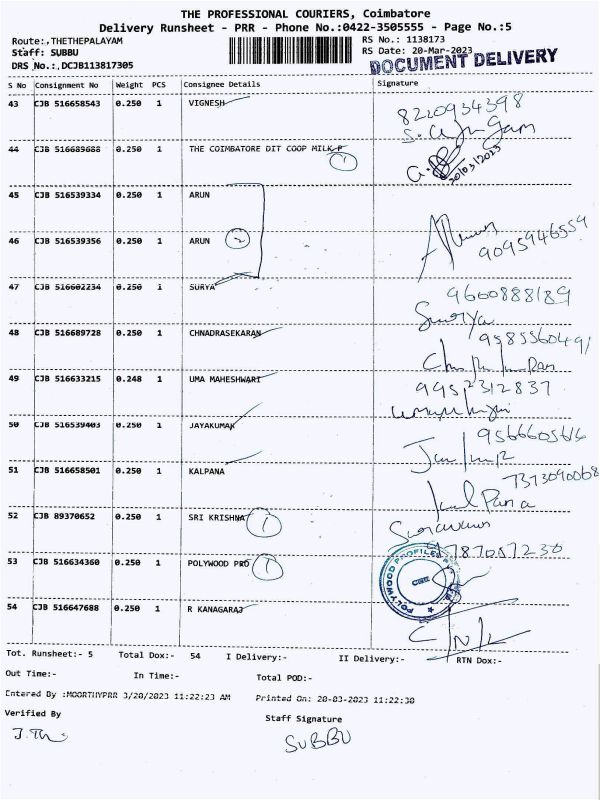 THE PROFESSIONAL COURIERS, Coimbatore
Delivery Runsheet - PRR - Phone No.:0422-3505555 - Page No.:5
Route:,THETHEPALAYAM RS No.: 1138173
Staff: SUBBU RS Date: 20-Mar-2023
DRS No.:,DCJB113817305 DOCUMENT DELIVERY
S No Consignment No Weight PCS Consignee Details Signature
43 CJB 516658543 0.250 1 VIGNESH 8220934398
44 CJB 516689688 0.250 1 THE COIMBATORE DIT COOP MILK P 1 20/03/2023
45 CJB 516539334 0.250 1 ARUN
46 CJB 516539356 0.250 1 ARUN 2 9095946559
47 CJB 516602234 0.250 1 SURYA 9600888189
Surya
48 CJB 516689728 0.250 1 CHNADRASEKARAN 9585560491
49 CJB 516633215 0.248 1 UMA MAHESHWARI 9952312837
50 CJB 516539403 0.250 1 JAYAKUMAR 9566605616
51 CJB 516658501 0.250 1 KALPANA 7373090068
52 CJB 89370652 0.250 1 SRI KRISHNA 1
53 CJB 516634360 0.250 1 POLYWOOD PRO 1 9787057230
POLYWOOD PROFILES
54 CJB 516647688 0.250 1 R KANAGARAJ
Tot. Runsheet:- 5 Total Dox:- 54 I Delivery:- II Delivery:- RTN Dox:-
Out Time:- In Time:- Total POD:-
Entered By :MOORTHYPRR 3/20/2023 11:22:23 AM Printed On: 20-03-2023 11:22:30
Verified By Staff Signature
SUBBU